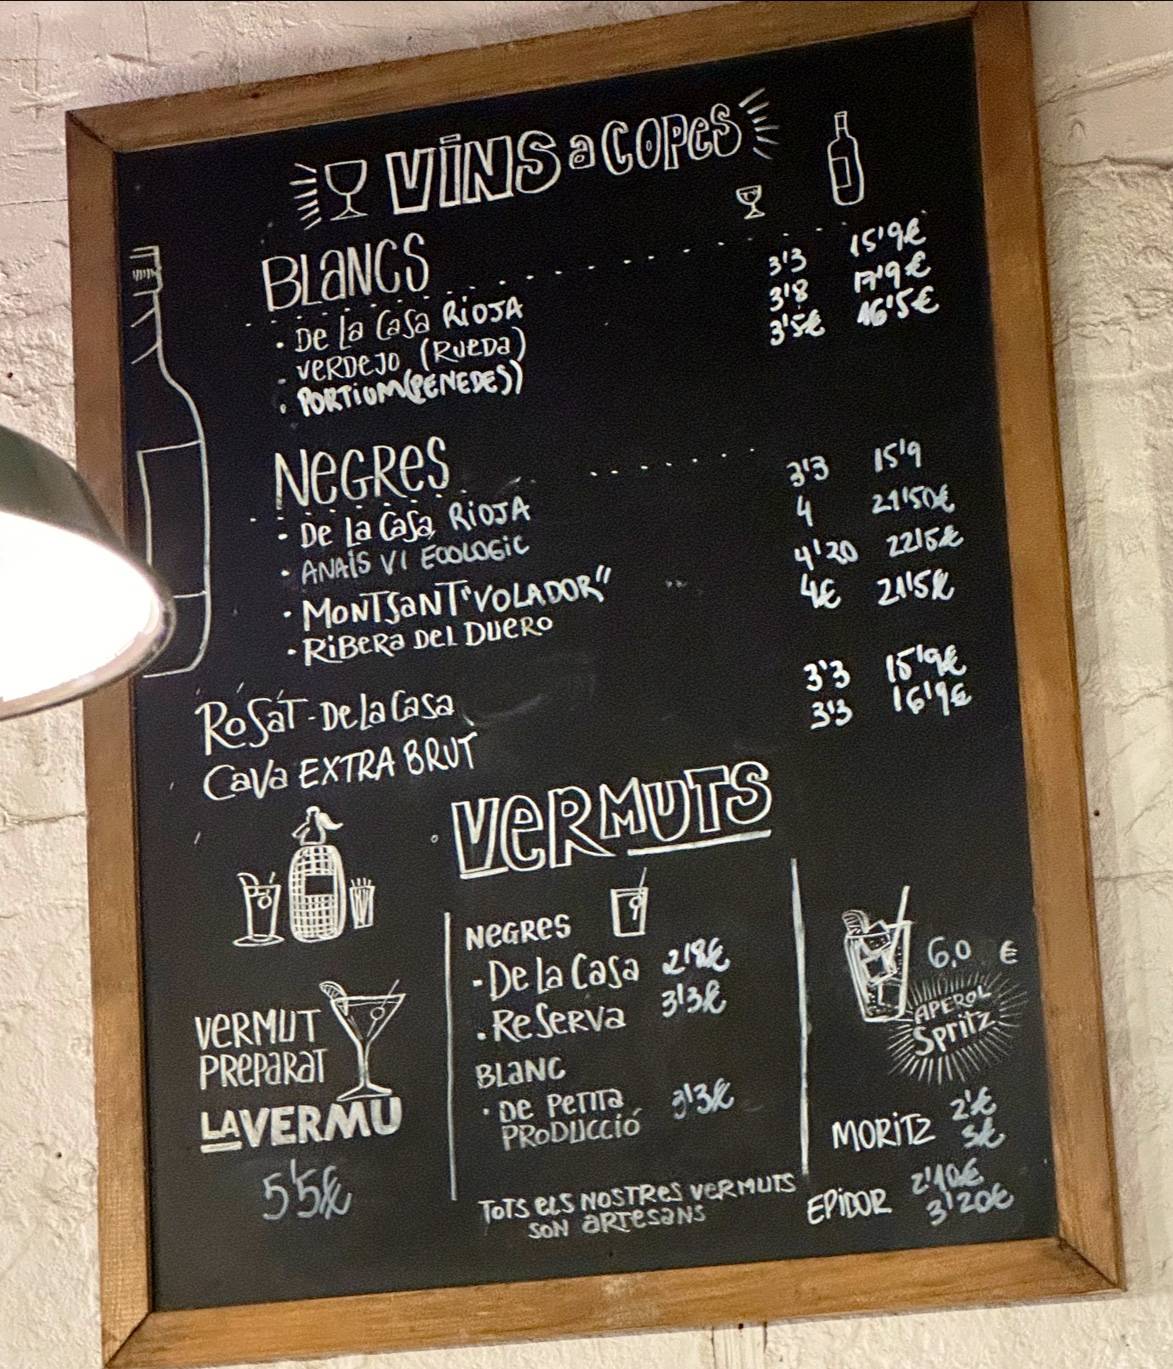 VINS a COPES
BLANCS
· De la Casa RIOJA 3'3 15'9€
· VERDEJO (RUEDA) 3'8 17'9€
· PORTIUM (PENEDES) 3'5€ 16'5€
NEGRES
· De la Casa RIOJA 3'3 15'9
· ANAIS VI ECOLOGIC 4 21'50€
· MONTSANT "VOLADOR" 4'20 22'5€
· RIBERA DEL DUERO 4€ 21'5€
ROSAT - De la Casa 3'3 15'9€
CAVA EXTRA BRUT 3'3 16'9€
VERMUTS
VERMUT
PREPARAT
LAVERMU
5'5€
NEGRES
· De la Casa 2'8€
· Reserva 3'3€
BLANC
· DE PETITA
PRODUCCIÓ 3'3€
TOTS ELS NOSTRES VERMUTS
SON ARTESANS
6,0 €
APEROL
Spritz
MORITZ 2'€
3€
EPIDOR 2'40€
3'20€